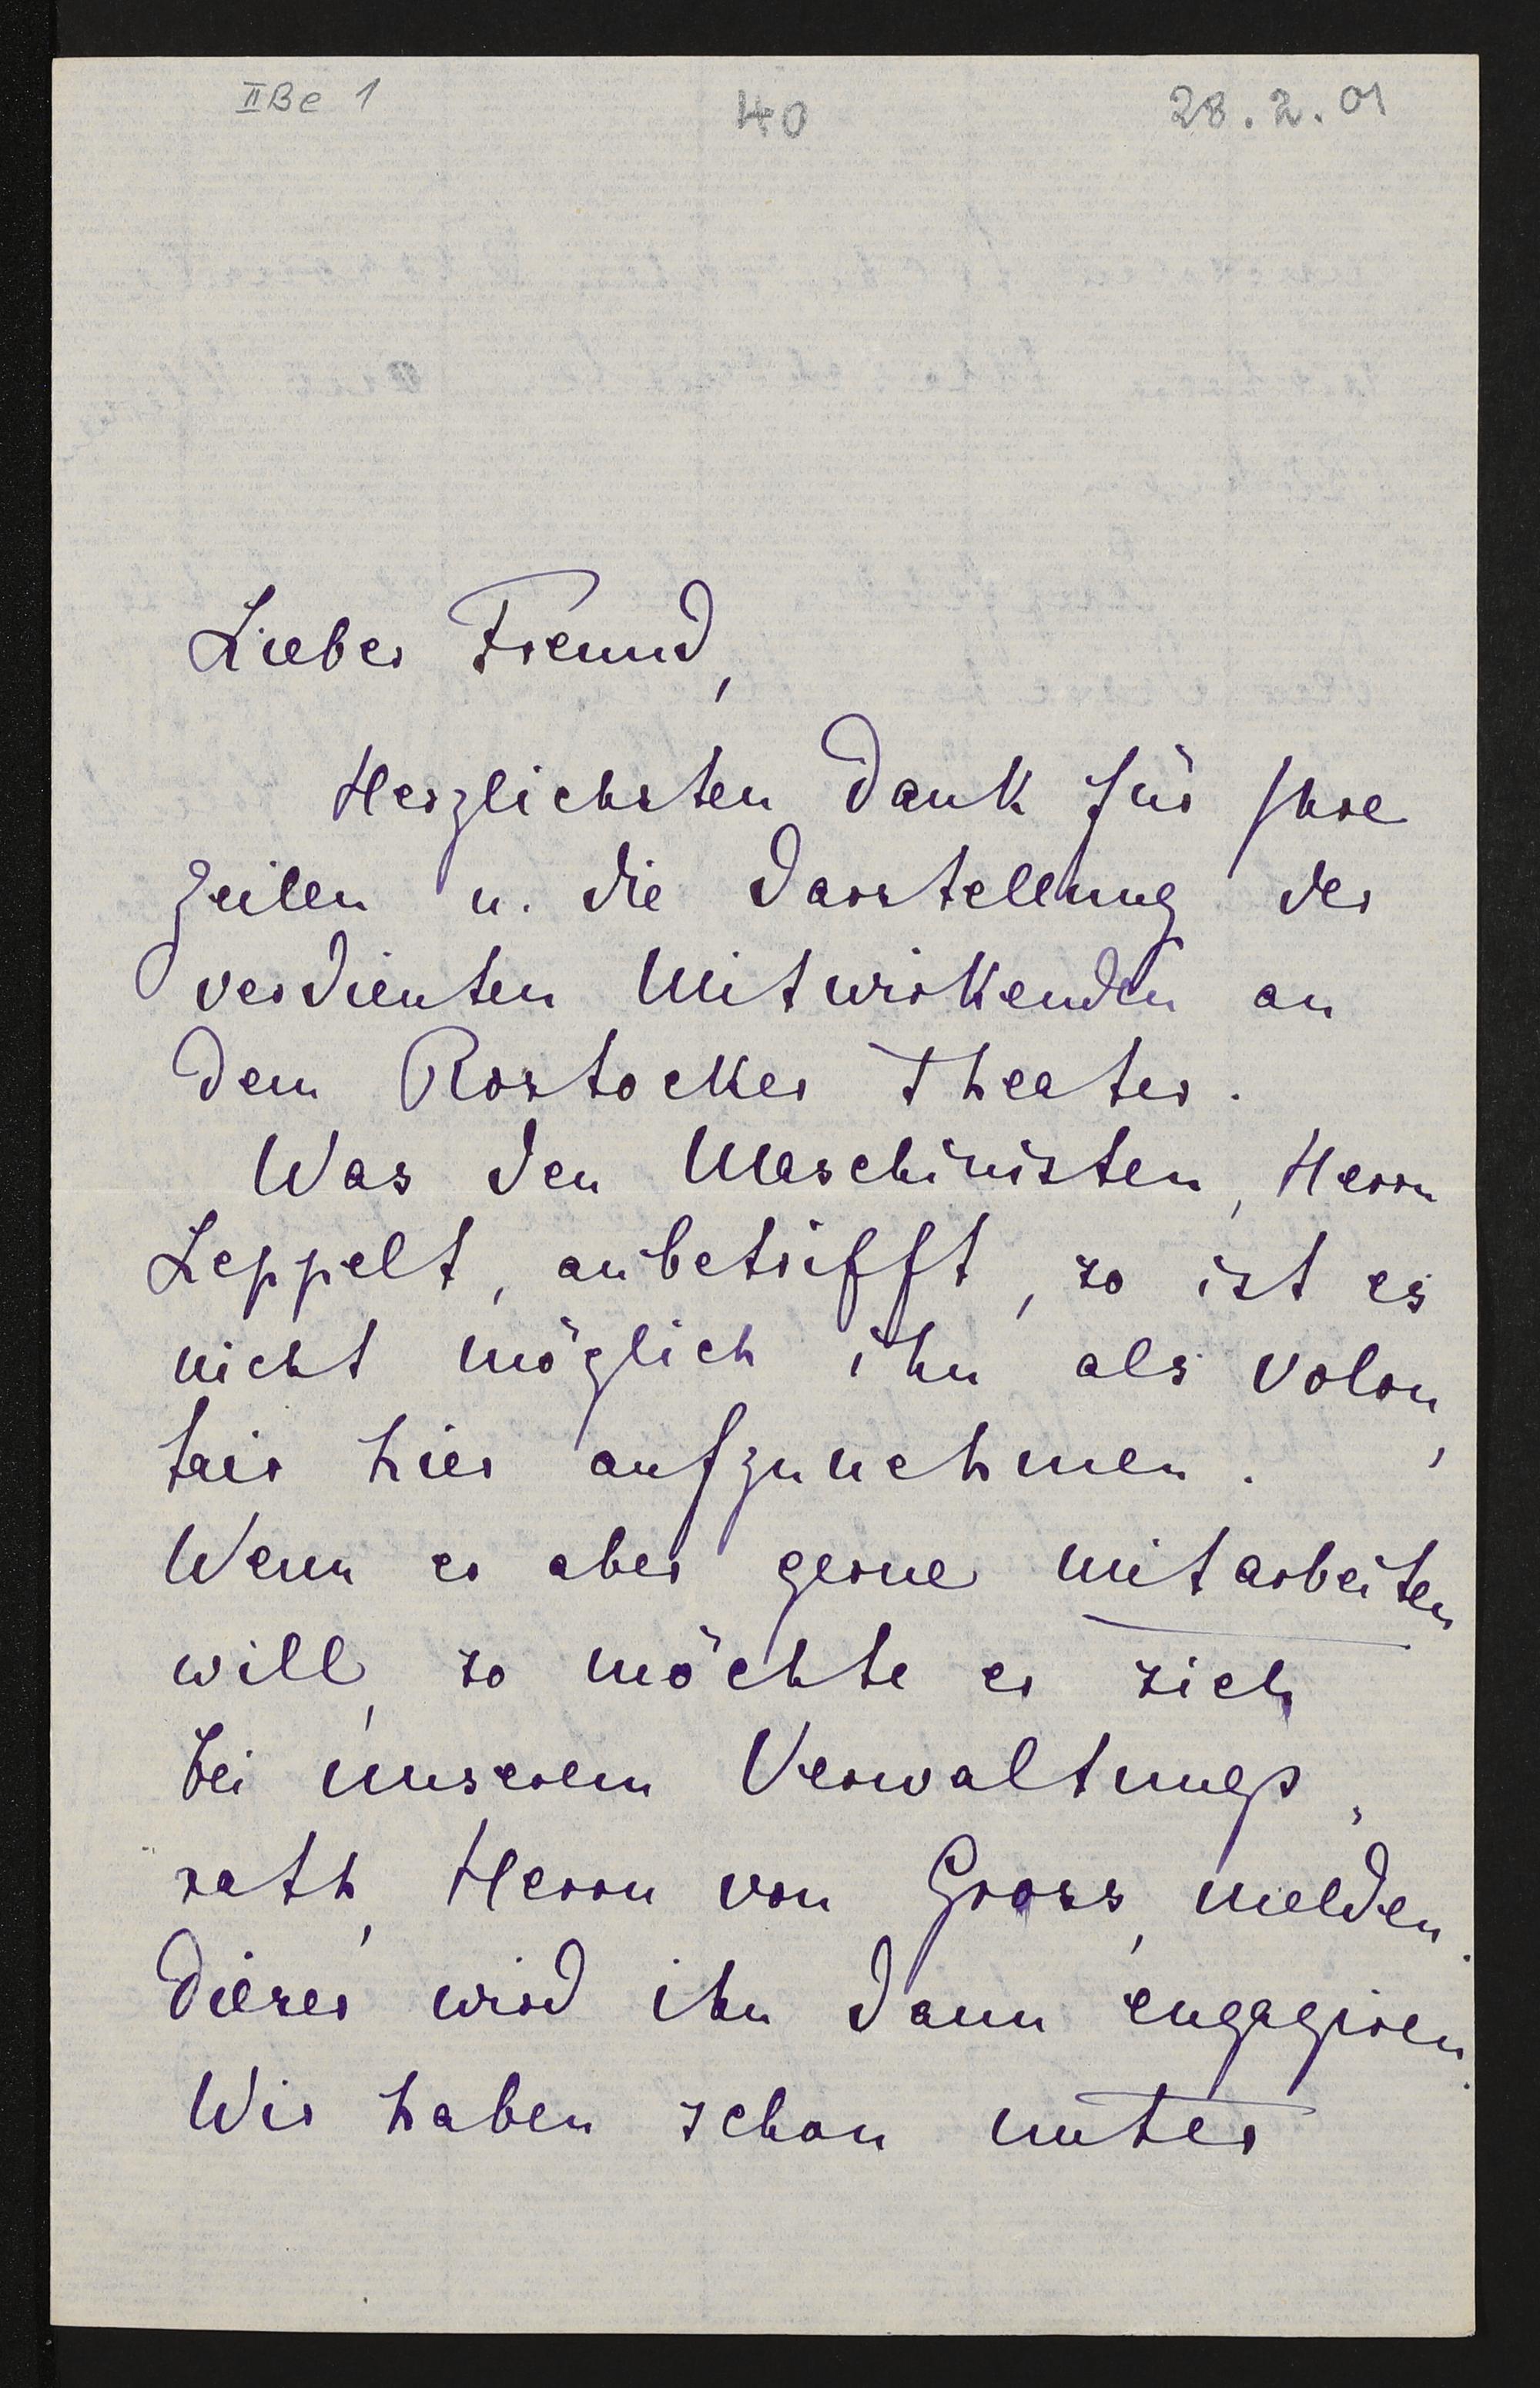 IIBe 1 40 28.2.01
Lieber Freund,
Herzlichsten Dank für Ihre
Zeilen u. die Darstellung der
verdienten Mitwirkenden an
dem Rostocker Theater.
Was den Maschinisten, Herrn
Leppelt, anbetrifft, so ist es
nicht möglich ihn als Volon-
tair hier aufzunehmen.
Wenn er aber gerne mitarbeiten
will, so möchte er sich
bei unserem Verwaltungs-
rath, Herrn von Gross, melden.
Dieser wird ihn dann engagiren.
Wir haben schon unter